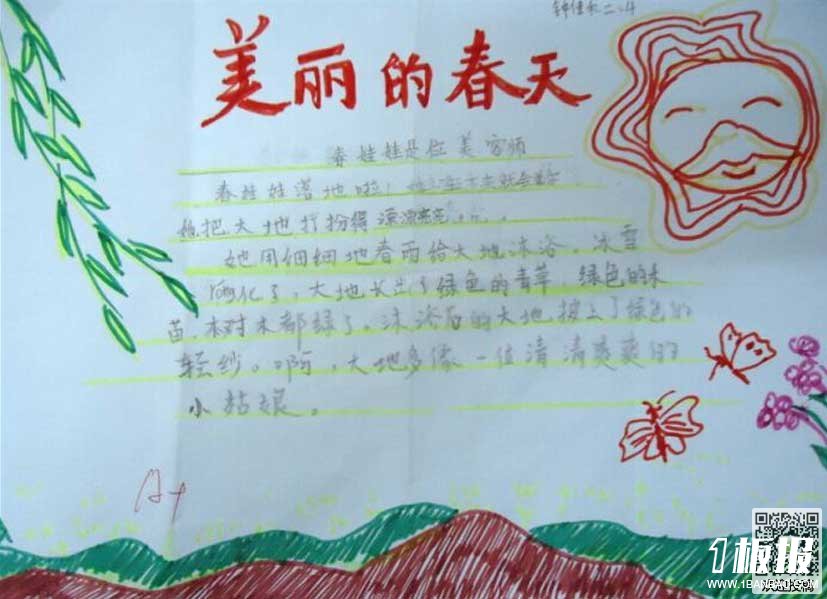 二.4
美丽的春天
春娃娃是位美容师
春娃娃落地啦！就会
她把大地打扮得漂漂亮亮。
她用细细地春雨给大地沐浴。冰雪
融化了，大地长出了绿色的青草，绿色的禾
苗，树木都绿了。沐浴后的大地披上了绿色的
轻纱。啊，大地多像一位清清爽爽的
小姑娘。
A+
1板报
WWW.1BANBAO.COM
欢迎投稿